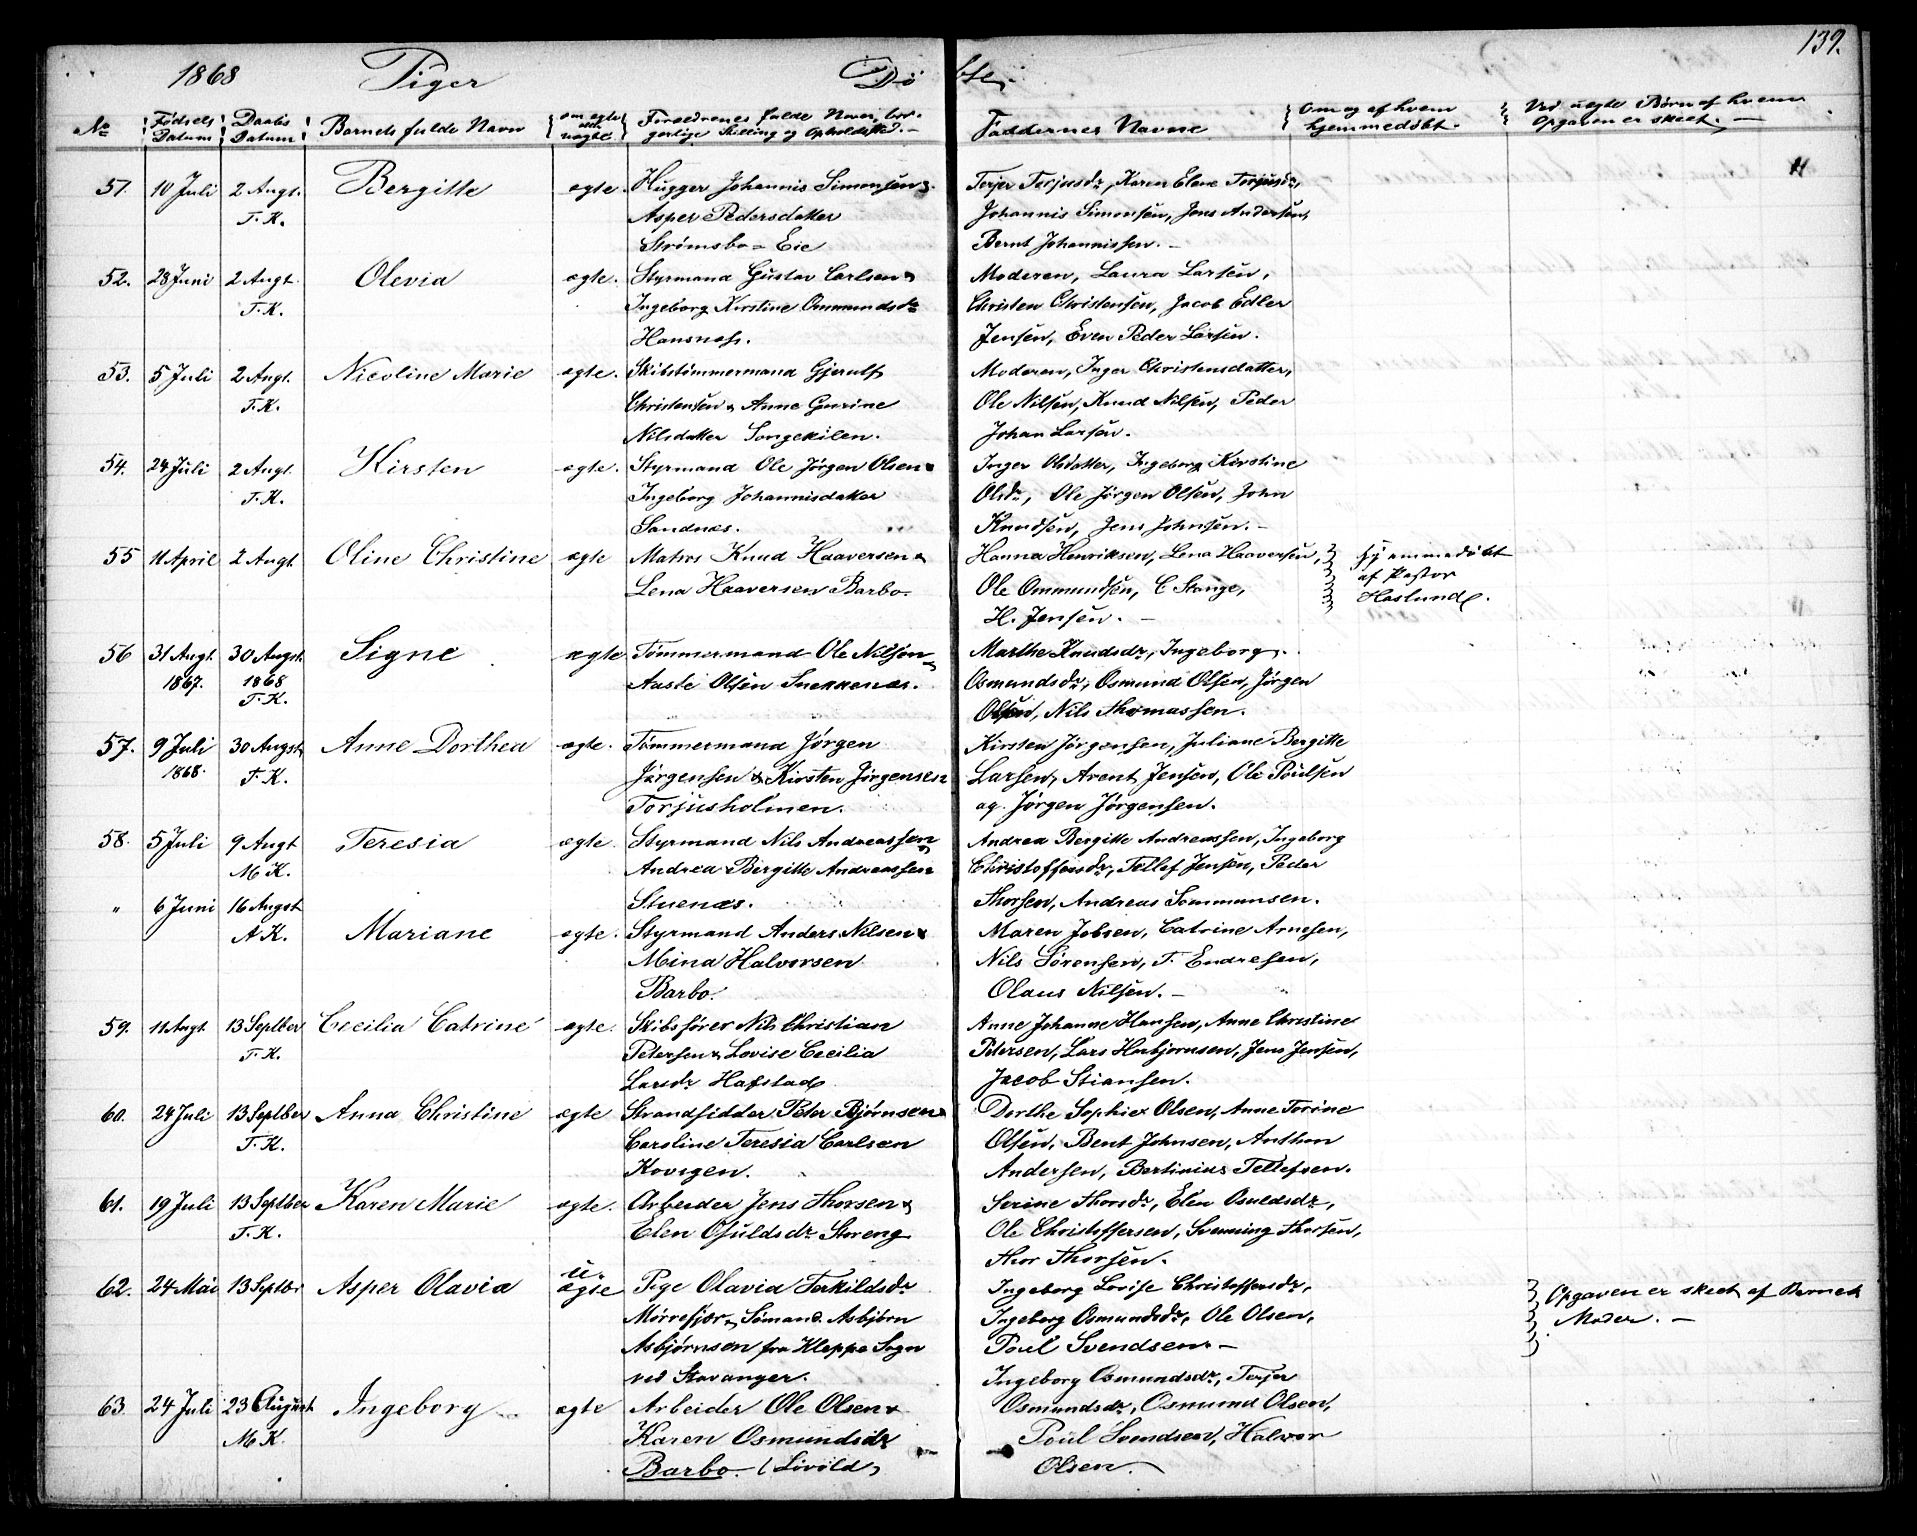 139.
1868 Piger Døbte.
No Fødsels Datum Daabs Datum Barnets fulde Navn om ægte eller uægte Forældrenes fulde Navne, borgerlige Stilling og Opholdssted. Faddernes Navne Om og af hvem hjemmedøbt. Ved uægte Børn af hvem Opgaven er skeet.
57. 10 Juli 2 Augt. Bergitte ægte. Hugger Johannis Simonsen & Terjer Terjusdr, Karen Elene Terjusdr,
T. K. Asper Pedersdatter Johannis Simonsen, Jens Andersen,
Strømsbo-Eie Bernt Johannissen. -
52. 28 Juni 2 Augt. Olevia ægte. Styrmand Gustav Carlsen & Moderen, Laura Larsen,
T. K. Ingeborg Kirstine Ommundsdr Christen Christensen, Jacob Edler
Hansnæs. Jensen, Even Peder Larsen.
53. 5 Juli 2 Augt. Nicoline Marie ægte. Skibstømmermand Gjerulf Moderen, Inger Christensdatter,
T. K. Christensen & Anne Gurine Ole Nilsen, Knud Nilsen, Peder
Nilsdatter Songekilen. Johan Larsen.
54. 24 Juli 2 Augt. Kirsten ægte. Styrmand Ole Jørgen Olsen & Inger Olsdatter, Ingeborg Kirstine
T. K. Ingeborg Johannisdatter Olsdr, Ole Jørgen Olsen, John
Sandnæs. Knudsen, Jens Johnsen. -
55 11 April 2 Augt Oline Christine ægte Matros Knud Haaversen & Hanna Henriksen, Lena Haaversen, Hjemmedøbt
Lena Haaversen Barbo. Ole Ommundsen, C Stange, af Pastor
H. Jensen. - Haslund.
56 31 Augt. 30 Augst Signe ægte Tømmermand Ole Nilsen & Marthe Knudsdr, Ingeborg
1867. 1868 Aaste Olsen Snekkenæs. Osmundsdr, Osmund Olsen, Jørgen
T. K. Olsen, Nils Thomassen.
57. 9 Juli 30 Augst Anne Dorthea ægte. Tømmermand Jørgen Kirsten Jørgensen, Juliane Bergitte
1868. T. K. Jørgensen & Kirsten Jørgensen Larsen, Arent Jensen, Ole Poulsen
Torjusholmen. og Jørgen Jørgensen.
58. 5 Juli 9 Augt Teresia ægte. Styrmand Nils Andreassen & Andrea Bergitte Andreassen, Ingeborg
M K. Andrea Bergitte Andreassen Christoffersdr, Tellef Jensen, Peder
" 6 Juni 16 Augst Stuenæs. Thorsen, Andreas Sommunsen.
A K. Mariane ægte. Styrmand Anders Nilsen & Maren Jobsen, Catrine Arnesen,
Mina Halvorsen Nils Sørensen, T. Endresen,
Barbo. Olaus Nilsen. -
59. 11 Augt. 13 Septber Cecilia Catrine ægte. Skibsfører Nils Christian Anne Johanne Hansen, Anne Christine
T. K. Petersen & Lovise Cecilia Petersen, Lars Herbjornsen, Jens Jensen,
Larsdr Hafstad. Jacob Stiansen.
60. 24 Juli 13 Septber Anna Christine ægte Strandsidder Peter Bjørnsen & Dorthe Sophie Olsen, Anne Torine
T. K. Caroline Teresia Carlsen Olsen, Bent Johnsen, Anthon
Kovigen. Andersen, Bertinius Tellefsen.
61. 19 Juli 13 Septber Karen Marie ægte. Arbeider Jens Thorsen & Serine Thorsdr, Elen Osuldsdr,
T. K. Elen Osuldsdr Storeng Ole Christoffersen, Svenning Thorsen,
Thor Thorsen.
62. 24 Mai 13 Septbr Asper Olavia u-ægte Pige Olavia Terkildsdr Ingeborg Lovise Christoffersdr, Opgaven er skeet af Barnets
Mørrefjær & Sømand Asbjørn Ingeborg Osmundsdr, Ole Olsen, Moder. -
Asbjørnsen fra Kleppe Sogn Poul Svendsen. -
ved Stavanger. Ingeborg Osmundsdr, Terjer
63. 24 Juli 23 August Ingeborg ægte Arbeider Ole Olsen & Osmundsdr, Osmund Olsen,
M K. Karen Osmundsdr Poul Svendsen, Halvor
Barbo. (Løvold) Olsen.